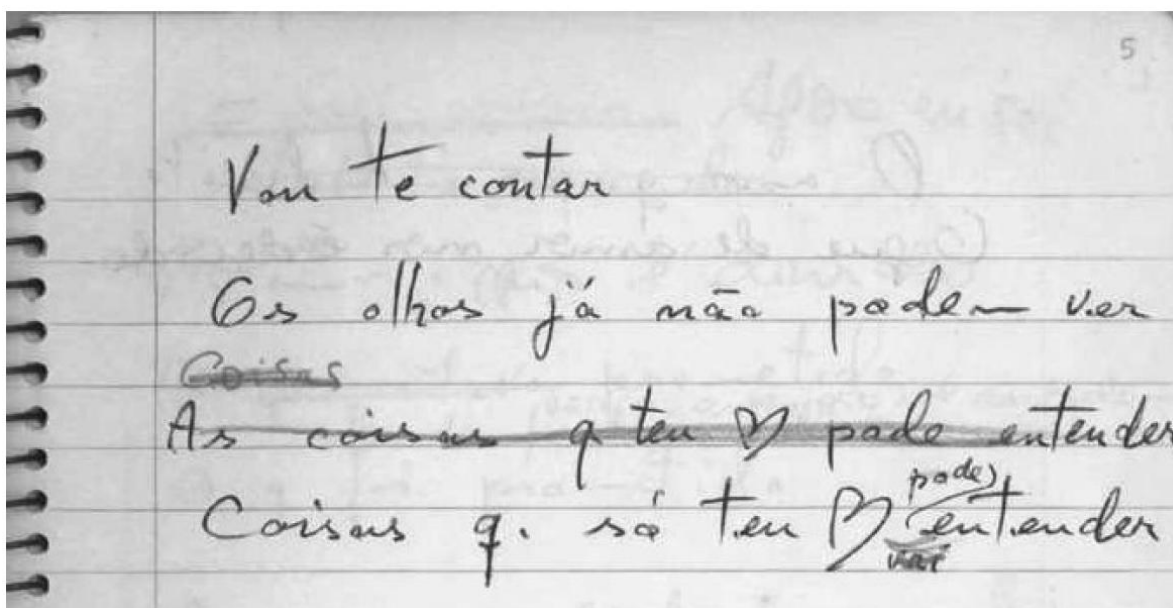 5
Vou te contar
Os olhos já não podem ver
Coisas
As coisas q teu ♡ pode entender
Coisas q. só teu ♡ pode entender
vai